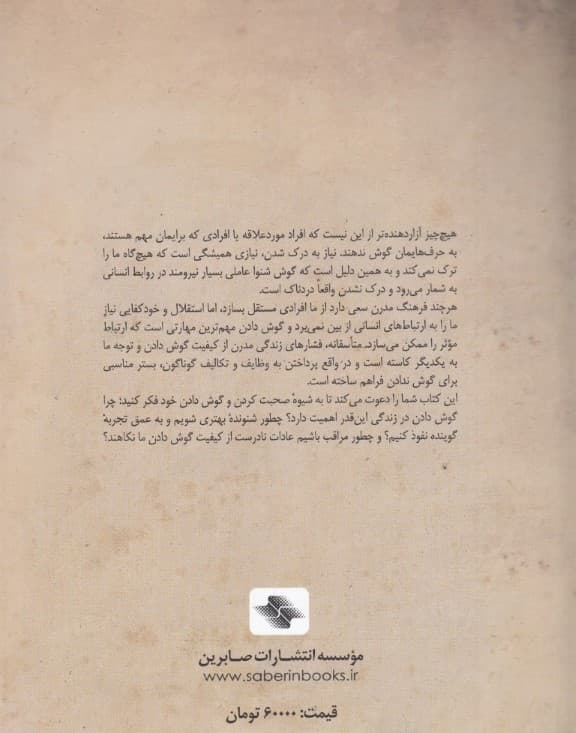 هیچ‌چیز آزاردهنده‌تر از این نیست که افراد موردعلاقه یا افرادی که برایمان مهم هستند،
به حرف‌هایمان گوش ندهند. نیاز به درک شدن، نیازی همیشگی است که هیچ‌گاه ما را
ترک نمی‌کند و به همین دلیل است که گوش شنوا عاملی بسیار نیرومند در روابط انسانی
به شمار می‌رود و درک نشدن واقعاً دردناک است.
هرچند فرهنگ مدرن سعی دارد از ما افرادی مستقل بسازد، اما استقلال و خودکفایی نیازِ
ما را به ارتباط‌های انسانی از بین نمی‌برد و گوش دادن مهم‌ترین مهارتی است که ارتباط
مؤثر را ممکن می‌سازد. متأسفانه، فشارهای زندگی مدرن از کیفیت گوش دادن و توجه ما
به یکدیگر کاسته است و در واقع پرداختن به وظایف و تکالیف گوناگون، بستر مناسبی
برای گوش ندادن فراهم ساخته است.
این کتاب شما را دعوت می‌کند تا به شیوهٔ صحبت کردن و گوش دادن خود فکر کنید؛ چرا
گوش دادن در زندگی این‌قدر اهمیت دارد؟ چطور شنوندهٔ بهتری شویم و به عمق تجربهٔ
گوینده نفوذ کنیم؟ و چطور مراقب باشیم عادات نادرست از کیفیت گوش دادن ما نکاهند؟
مؤسسه انتشارات صابرین
www.saberinbooks.ir
قیمت: ۶۰۰۰۰ تومان